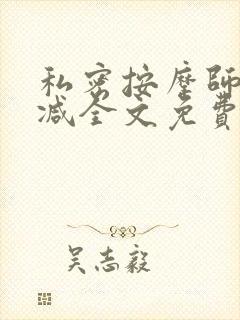 私密按摩師
减全文免費
吴志毅